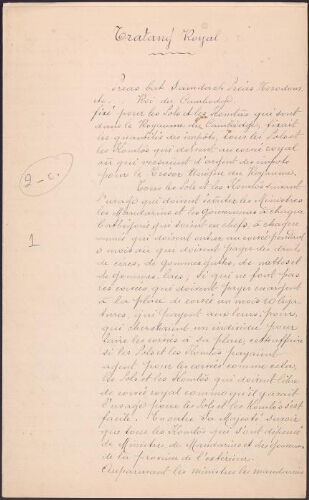 Tratang Royal
Préas bat Samdach Préas Norodom
etc. Roi du Cambodge.
fixé pour les Pols et les Komlas qui sont
dans le Royaume du Cambodge, fixant
les quantités des impôts, tous les Pols et
les Komlas qui doivent au corvé royal
ou qui versement d'argent des impôts
pour le Trésor Unifié du Royaume.
Tous les Pols et les Komlas suivant
l'usage qui doivent les Ministres
les Mandarins et les Gouverneurs à chaque
catégorie qui suivant en chefs, à chaque
année qui doivent entrer au corvé pendant
3 mois ou que doivent payer des droit
de cires, de gommeguttes, de nattes et
de gommes, lires, si qui ne font pas
ses corvées que doivent payer en argent
à la place de corvée un mois 10 ligatures,
qui payent avec leurs, pour,
qui cherchaient un individu pour
faire les corvées à sa place, cette affaire
si les Pols et les Komlas payaient
argent pour les corvées comme cela,
les Pols et les Komlas qui doivent libre
de corvée royal comme qu'il garait
l'usage pour les Pols et les Komlas c'est
facile. Cependre Sa Majesté savoir
que tous les Komlas qui sont dépensé
de Ministres de Mandarins et des Gouverneurs
de la province de l'extérieur.
Auparavant les ministres les mandarins
2-c.
1